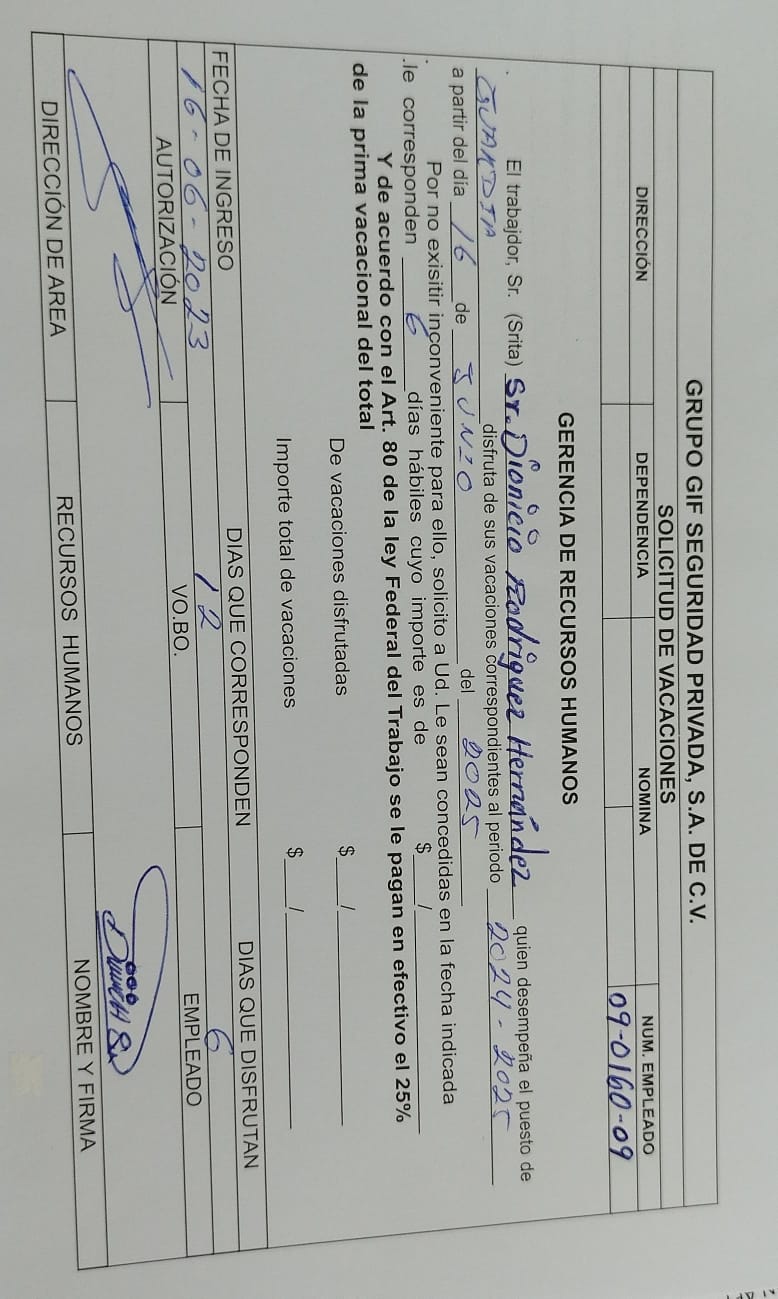 GRUPO GIF SEGURIDAD PRIVADA, S.A. DE C.V.
SOLICITUD DE VACACIONES
DIRECCIÓN DEPENDENCIA NOMINA NUM. EMPLEADO
09-0160-09
GERENCIA DE RECURSOS HUMANOS
El trabajdor, Sr. (Srita) Sr. Dionicio Rodriguez Hernández quien desempeña el puesto de
GUARDIA disfruta de sus vacaciones correspondientes al periodo 2024-2025
a partir del día 16 de JUNIO del 2025
Por no exisitir inconveniente para ello, solicito a Ud. Le sean concedidas en la fecha indicada
.le corresponden 6 días hábiles cuyo importe es de $ /
Y de acuerdo con el Art. 80 de la ley Federal del Trabajo se le pagan en efectivo el 25%
de la prima vacacional del total
De vacaciones disfrutadas $ /
Importe total de vacaciones $ /
FECHA DE INGRESO DIAS QUE CORRESPONDEN DIAS QUE DISFRUTAN
16-06-2023 12 6
AUTORIZACIÓN VO.BO. EMPLEADO
DIRECCIÓN DE AREA RECURSOS HUMANOS NOMBRE Y FIRMA